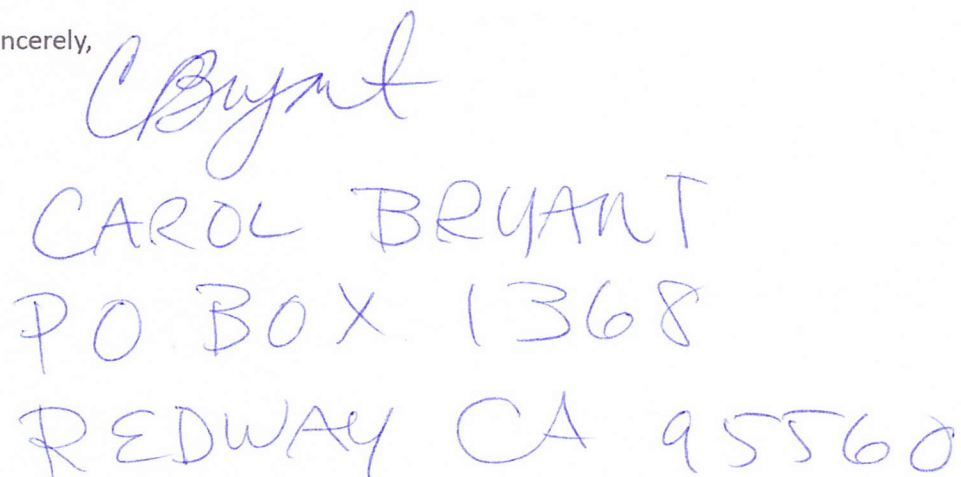 ncerely,
CBryant
CAROL BRYANT
PO BOX 1368
REDWAY CA 95560